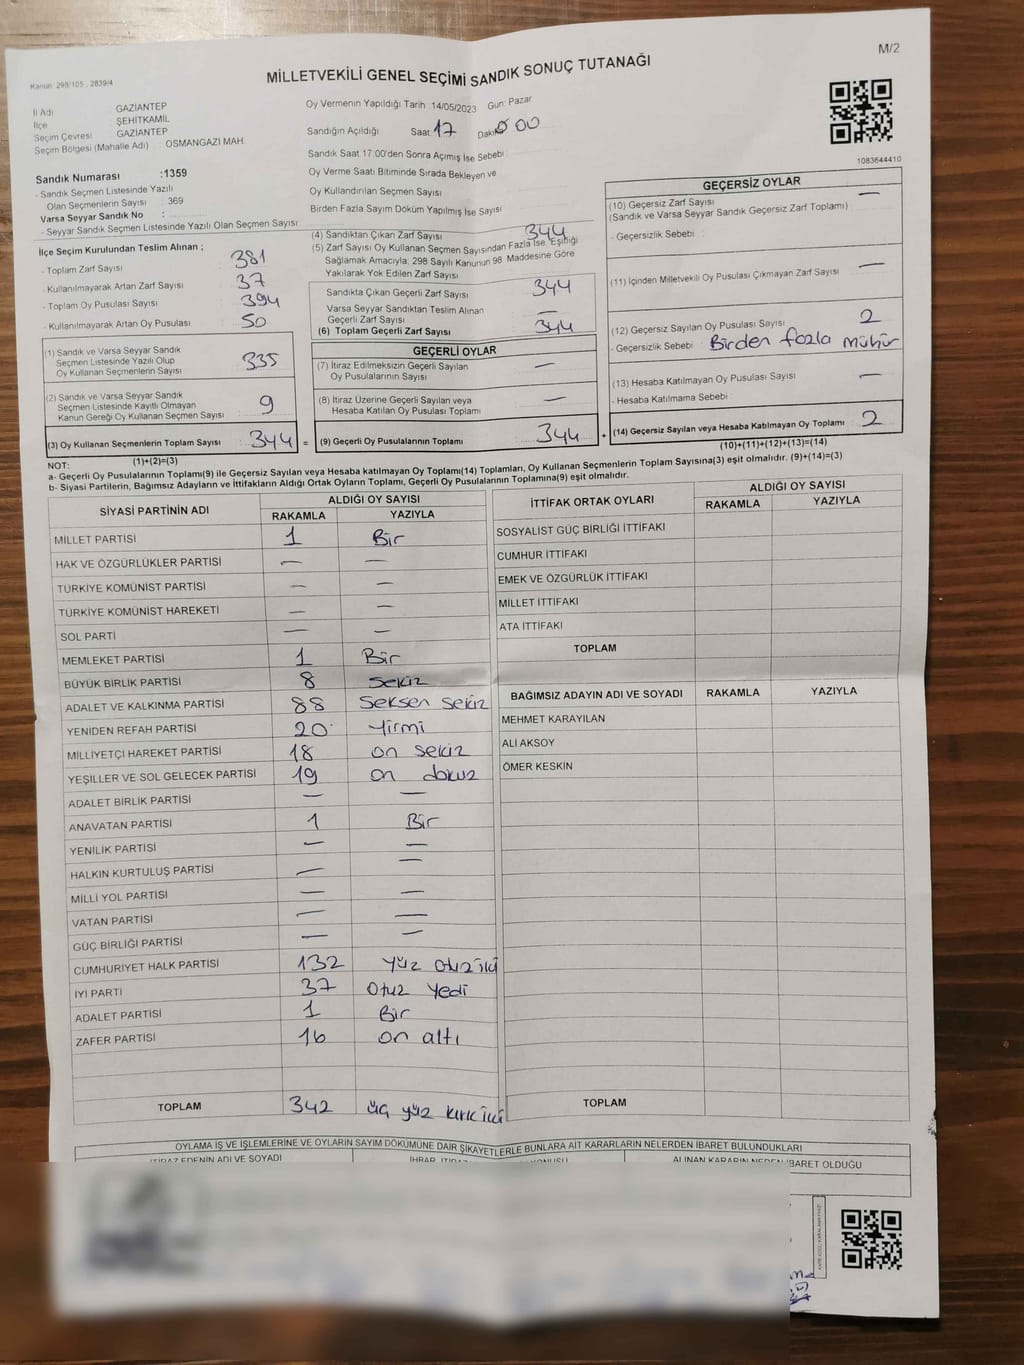 M/2
Kanun: 298/105 , 2839/4
MİLLETVEKİLİ GENEL SEÇİMİ SANDIK SONUÇ TUTANAĞI
İl Adı GAZİANTEP
İlçe ŞEHİTKAMİL
Seçim Çevresi GAZİANTEP
Seçim Bölgesi (Mahalle Adı) : OSMANGAZİ MAH.
Oy Vermenin Yapıldığı Tarih :14/05/2023 Gün: Pazar
Sandığın Açıldığı Saat 17 Dakika 00
Sandık Saat 17:00'den Sonra Açımış İse Sebebi
Oy Verme Saati Bitiminde Sırada Bekleyen ve
Oy Kullandırılan Seçmen Sayısı
Birden Fazla Sayım Döküm Yapılmış İse Sayısı
1083644410
Sandık Numarası :1359
- Sandık Seçmen Listesinde Yazılı
Olan Seçmenlerin Sayısı : 369
Varsa Seyyar Sandık No :
- Seyyar Seçmen Sandık Listesinde Yazılı Olan Seçmen Sayısı
İlçe Seçim Kurulundan Teslim Alınan ;
- Toplam Zarf Sayısı 381
- Kullanılmayarak Artan Zarf Sayısı 37
- Toplam Oy Pusulası Sayısı 394
- Kullanılmayarak Artan Oy Pusulası 50
(1) Sandık ve Varsa Seyyar Sandık
Seçmen Listesinde Yazılı Olup
Oy Kullanan Seçmenlerin Sayısı 335
(2) Sandık ve Varsa Seyyar Sandık
Seçmen Listesinde Kayıtlı Olmayan
Kanun Gereği Oy Kullanan Seçmen Sayısı 9
(3) Oy Kullanan Seçmenlerin Toplam Sayısı : 344 =
(1)+(2)=(3)
(4) Sandıktan Çıkan Zarf Sayısı 344
(5) Zarf Sayısı Oy Kullanan Seçmen Sayısından Fazla İse, Eşitliği
Sağlamak Amacıyla; 298 Sayılı Kanunun 98. Maddesine Göre
Yakılarak Yok Edilen Zarf Sayısı
Sandıkta Çıkan Geçerli Zarf Sayısı 344
Varsa Seyyar Sandıktan Teslim Alınan
Geçerli Zarf Sayısı —
(6) Toplam Geçerli Zarf Sayısı 344
GEÇERLİ OYLAR
(7) İtiraz Edilmeksizin Geçerli Sayılan
Oy Pusulalarının Sayısı —
(8) İtiraz Üzerine Geçerli Sayılan veya
Hesaba Katılan Oy Pusulası Toplamı —
(9) Geçerli Oy Pusulalarının Toplamı 344 +
GEÇERSİZ OYLAR
(10) Geçersiz Zarf Sayısı —
(Sandık ve Varsa Seyyar Sandık Geçersiz Zarf Toplamı)
- Geçersizlik Sebebi :
(11) İçinden Milletvekili Oy Pusulası Çıkmayan Zarf Sayısı —
(12) Geçersiz Sayılan Oy Pusulası Sayısı 2
- Geçersizlik Sebebi : Birden fazla mühür
(13) Hesaba Katılmayan Oy Pusulası Sayısı —
- Hesaba Katılmama Sebebi :
(14) Geçersiz Sayılan veya Hesaba Katılmayan Oy Toplamı 2
(10)+(11)+(12)+(13)=(14)
NOT:
a- Geçerli Oy Pusulalarının Toplamı(9) ile Geçersiz Sayılan veya Hesaba katılmayan Oy Toplamı(14) Toplamları, Oy Kullanan Seçmenlerin Toplam Sayısına(3) eşit olmalıdır. (9)+(14)=(3)
b- Siyasi Partilerin, Bağımsız Adayların ve İttifakların Aldığı Ortak Oyların Toplamı, Geçerli Oy Pusulalarının Toplamına(9) eşit olmalıdır.
SİYASİ PARTİNİN ADI ALDIĞI OY SAYISI
RAKAMLA YAZIYLA
MİLLET PARTİSİ 1 Bir
HAK VE ÖZGÜRLÜKLER PARTİSİ — —
TÜRKİYE KOMÜNİST PARTİSİ — —
TÜRKİYE KOMÜNİST HAREKETİ — —
SOL PARTİ — —
MEMLEKET PARTİSİ 1 Bir
BÜYÜK BİRLİK PARTİSİ 8 Sekiz
ADALET VE KALKINMA PARTİSİ 88 Seksen sekiz
YENİDEN REFAH PARTİSİ 20 Yirmi
MİLLİYETÇİ HAREKET PARTİSİ 18 on sekiz
YEŞİLLER VE SOL GELECEK PARTİSİ 19 on dokuz
ADALET BİRLİK PARTİSİ — —
ANAVATAN PARTİSİ 1 Bir
YENİLİK PARTİSİ — —
HALKIN KURTULUŞ PARTİSİ — —
MİLLİ YOL PARTİSİ — —
VATAN PARTİSİ — —
GÜÇ BİRLİĞİ PARTİSİ — —
CUMHURİYET HALK PARTİSİ 132 Yüz otuz iki
İYİ PARTİ 37 Otuz Yedi
ADALET PARTİSİ 1 Bir
ZAFER PARTİSİ 16 on altı
TOPLAM 342 üç yüz kırk iki
İTTİFAK ORTAK OYLARI ALDIĞI OY SAYISI
RAKAMLA YAZIYLA
SOSYALİST GÜÇ BİRLİĞİ İTTİFAKI
CUMHUR İTTİFAKI
EMEK VE ÖZGÜRLÜK İTTİFAKI
MİLLET İTTİFAKI
ATA İTTİFAKI
TOPLAM
BAĞIMSIZ ADAYIN ADI VE SOYADI RAKAMLA YAZIYLA
MEHMET KARAYILAN
ALİ AKSOY
ÖMER KESKİN
TOPLAM
OYLAMA İŞ VE İŞLEMLERİNE VE OYLARIN SAYIM DÖKÜMÜNE DAİR ŞİKAYETLERLE BUNLARA AİT KARARLARIN NELERDEN İBARET BULUNDUKLARI
İTİRAZ EDENİN ADI VE SOYADI
ALINAN KARARIN NEDEN İBARET OLDUĞU